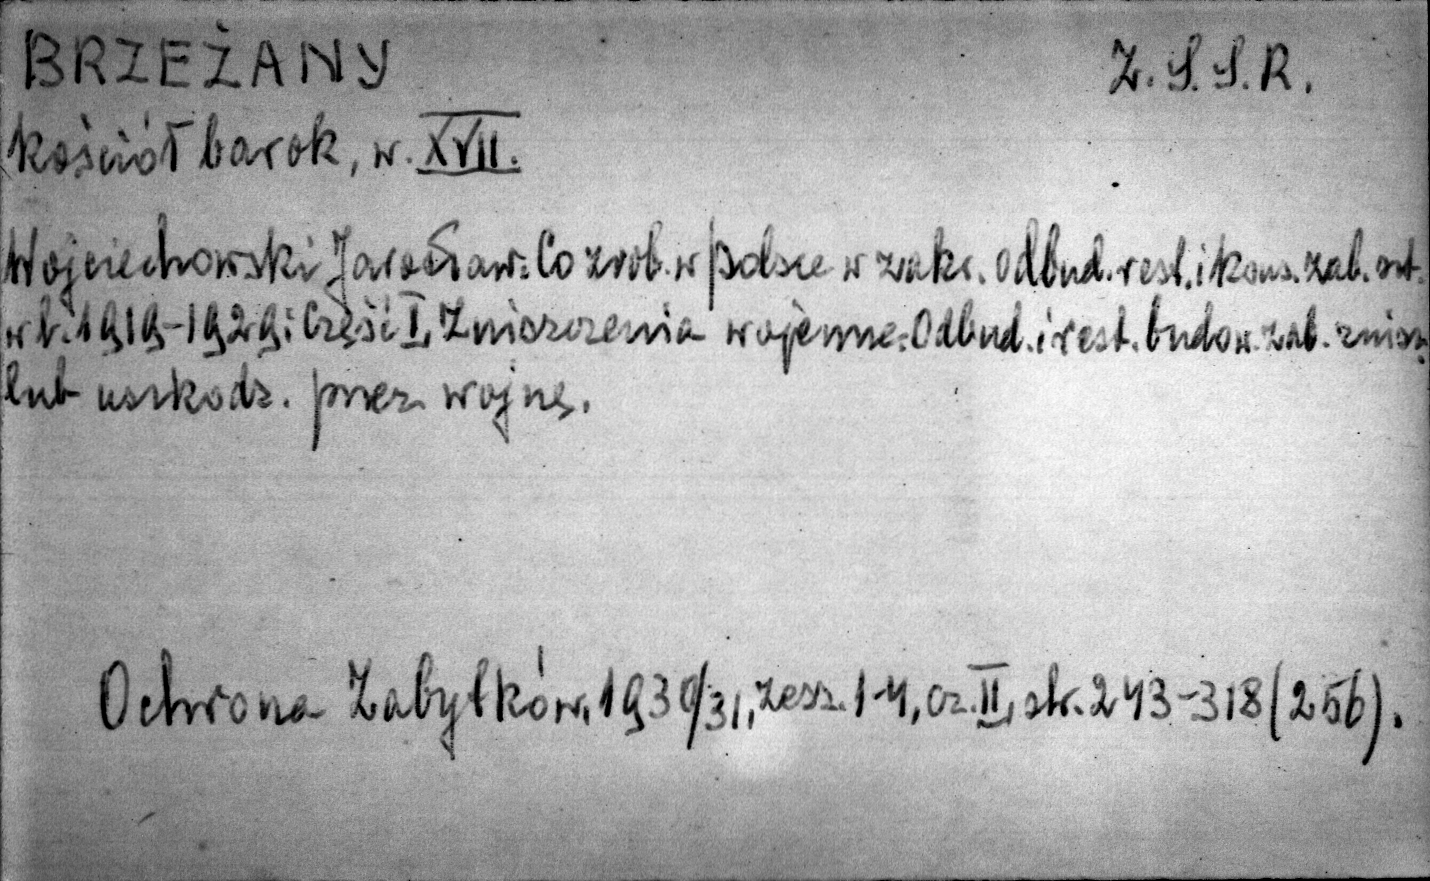 BRZEŻANY Z.S.S.R.
kościół barok, w. XVII.
Wojciechowski Jarosław: Co zrob. w Polsce w zakr. odbud. rest. i kons. zab. szt.
w l. 1919-1929: Część I, Zniszczenia wojenne: Odbud. i rest. budow. zab. zniszcz.
lub uszkodz. przez wojnę.
Ochrona Zabytków, 1930/31, zesz. 1-4, cz. II, str. 243-318 (256).